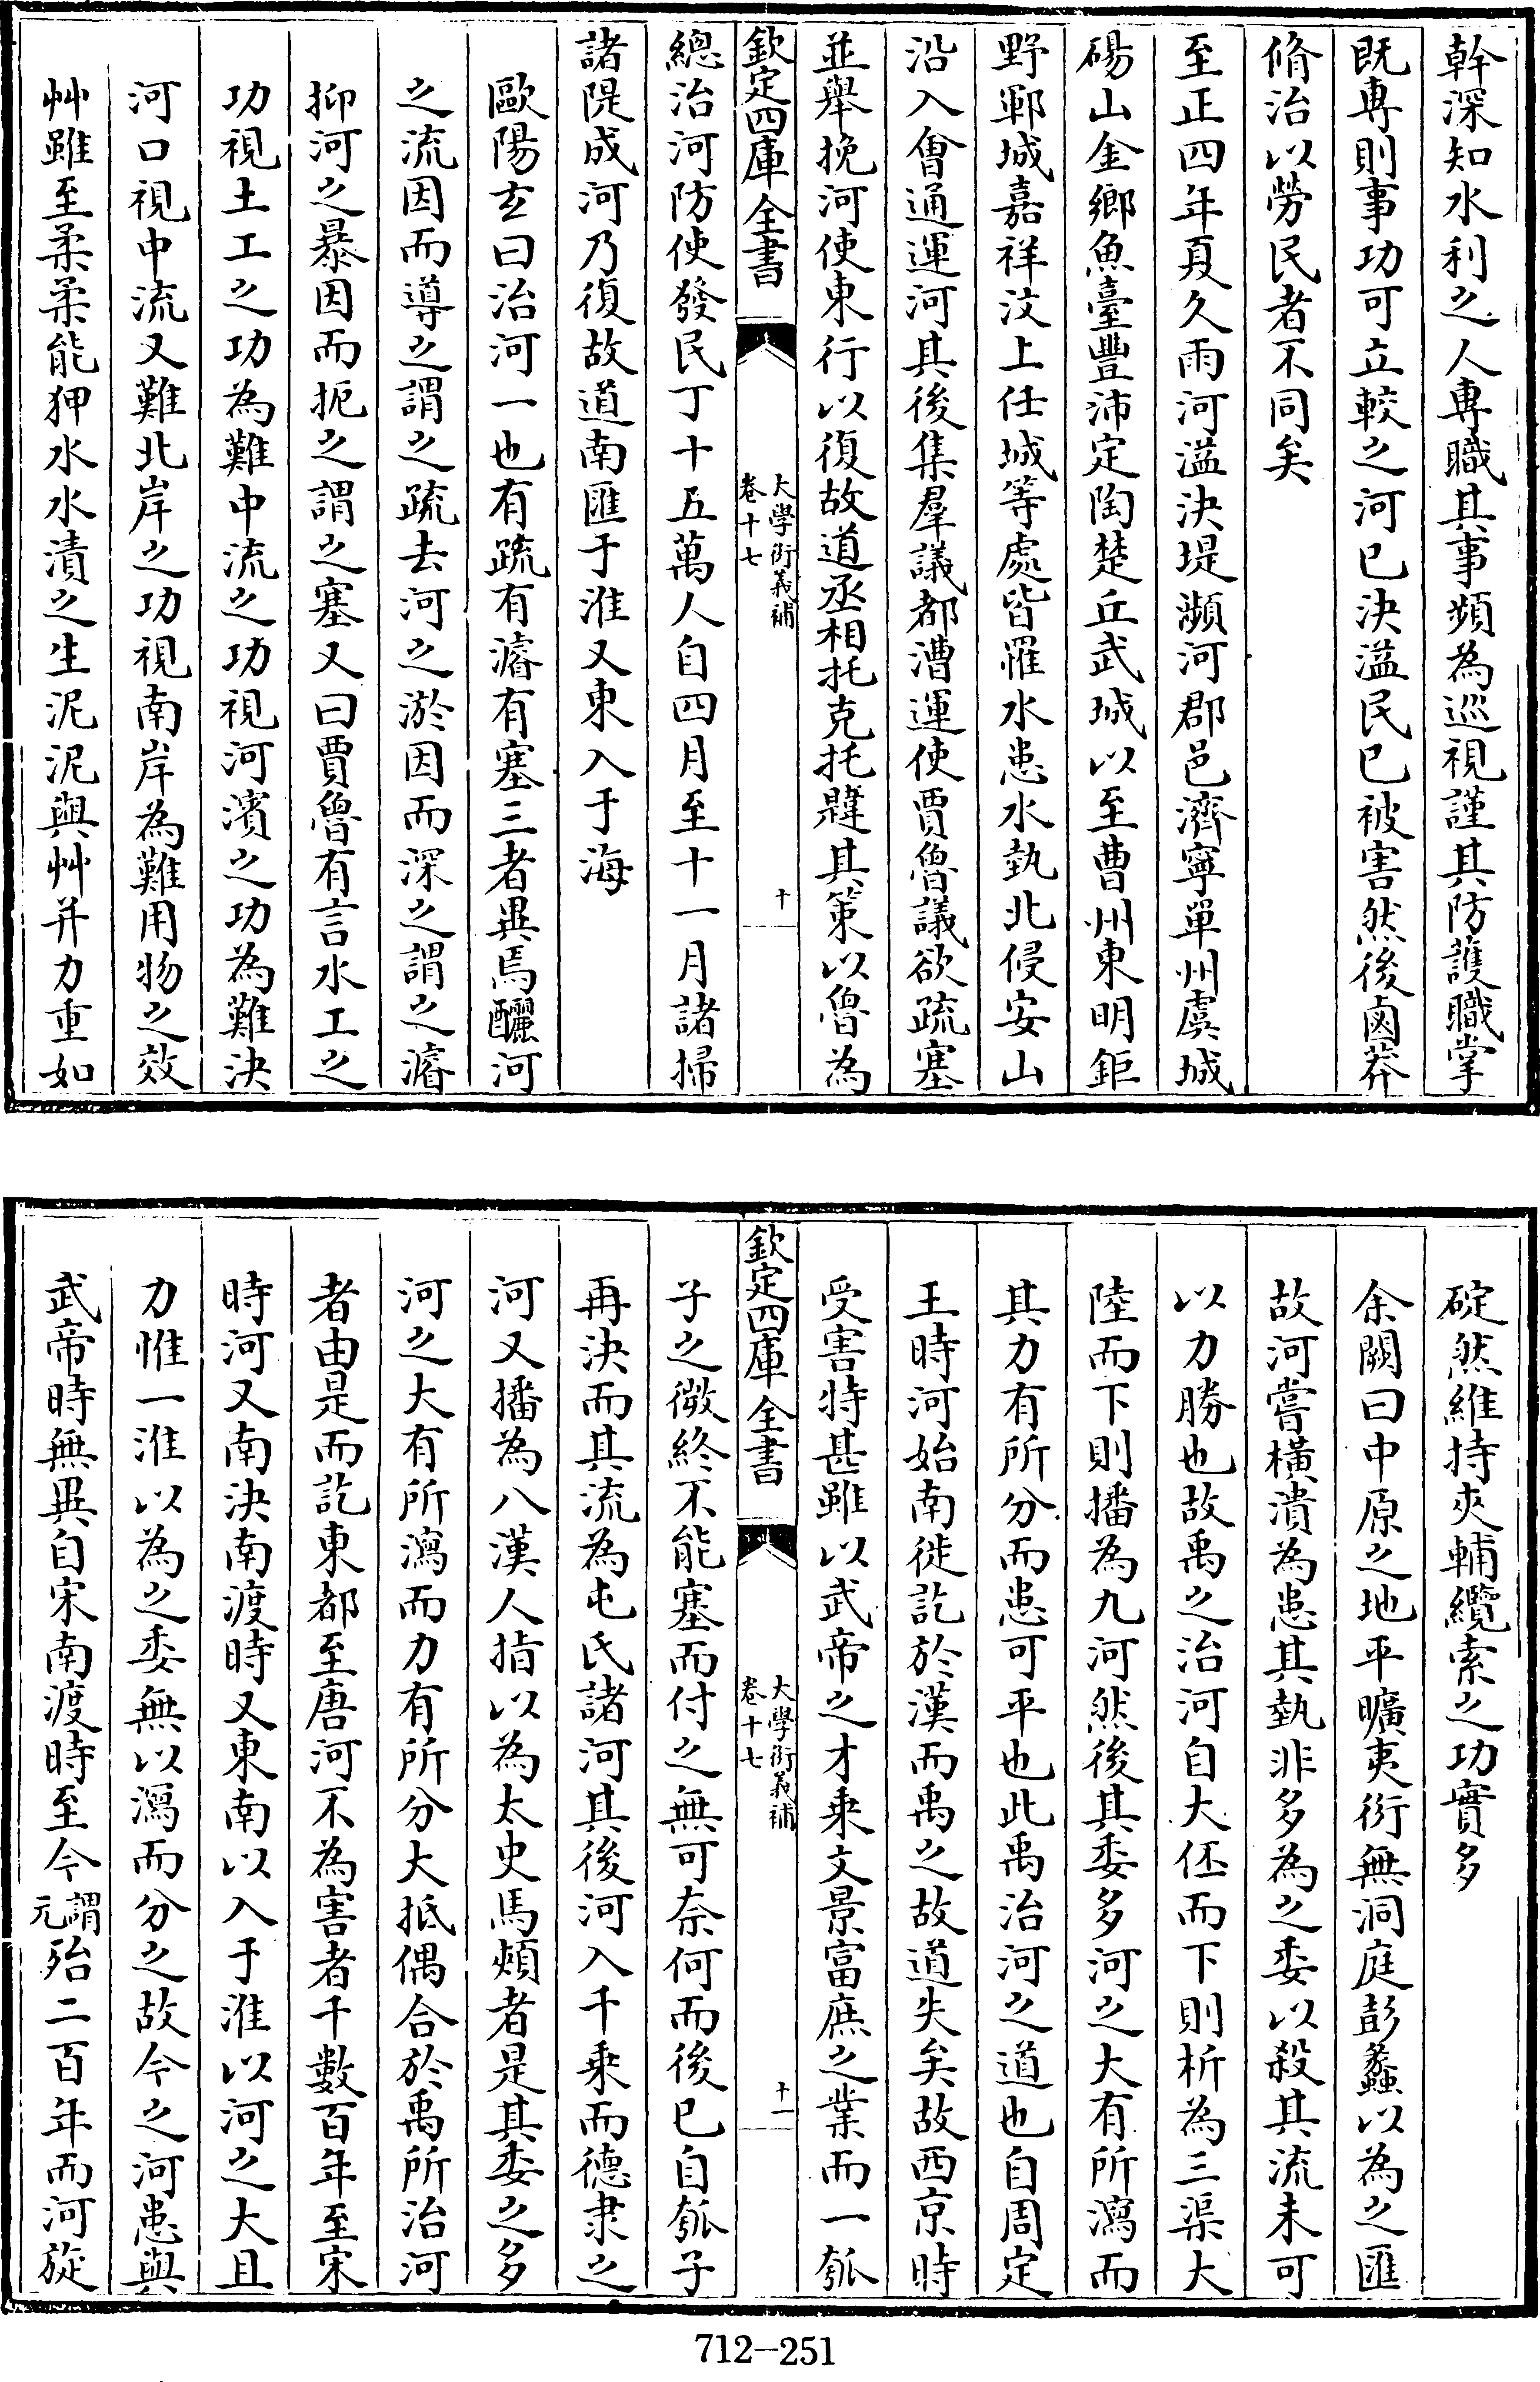 幹深知水利之人專職其事頻為巡視謹其防護職掌
既專則事功可立較之河已決溢民已被害然後鹵莽
脩治以勞民者不同矣
至正四年夏久雨河溢決堤瀕河郡邑濟寧單州虞城
碭山金鄉魚臺豐沛定陶楚丘武城以至曹州東明鉅
野鄆城嘉祥汶上任城等處皆罹水患水埶北侵安山
沿入會通運河其後集羣議都漕運使賈魯議欲疏塞
並舉挽河使東行以復故道丞相托克托韙其策以魯為
欽定四庫全書
大學衍義補
卷十七
十
總治河防使發民丁十五萬人自四月至十一月諸掃
諸隄成河乃復故道南匯于淮又東入于海
歐陽玄曰治河一也有疏有濬有塞三者異焉釃河
之流因而導之謂之疏去河之淤因而深之謂之濬
抑河之暴因而扼之謂之塞又曰賈魯有言水工之
功視土工之功為難中流之功視河濱之功為難決
河口視中流又難北岸之功視南岸為難用物之效
艸雖至柔柔能狎水水漬之生泥泥與艸并力重如
碇然維持夾輔纜索之功實多
余闕曰中原之地平曠夷衍無洞庭彭蠡以為之匯
故河嘗橫潰為患其埶非多為之委以殺其流未可
以力勝也故禹之治河自大伾而下則析為三渠大
陸而下則播為九河然後其委多河之大有所瀉而
其力有所分而患可平也此禹治河之道也自周定
王時河始南徙訖於漢而禹之故道失矣故西京時
受害特甚雖以武帝之才乘文景富庶之業而一瓠
欽定四庫全書
大學衍義補
卷十七
十一
子之微終不能塞而付之無可奈何而後已自瓠子
再決而其流為屯氏諸河其後河入千乘而德隶之
河又播為八漢人指以為太史馬頰者是其委之多
河之大有所瀉而力有所分大抵偶合於禹所治河
者由是而訖東都至唐河不為害者千數百年至宋
時河又南決南渡時又東南以入于淮以河之大且
力惟一淮以為之委無以瀉而分之故今之河患與
武帝時無異自宋南渡時至今謂元殆二百年而河旋
712-251